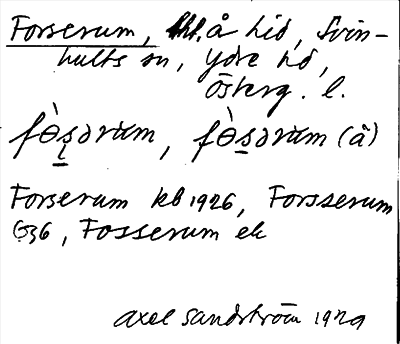 Forserum, å hid, Svin-
hults sn, Ydre hd,
Österg. l.
fɵ̀s̱ərum, fɵ̀s̱ərum (å)
Forserum kb 1926, Forsserum
G36, Fosserum ek
Axel Sandström 1929